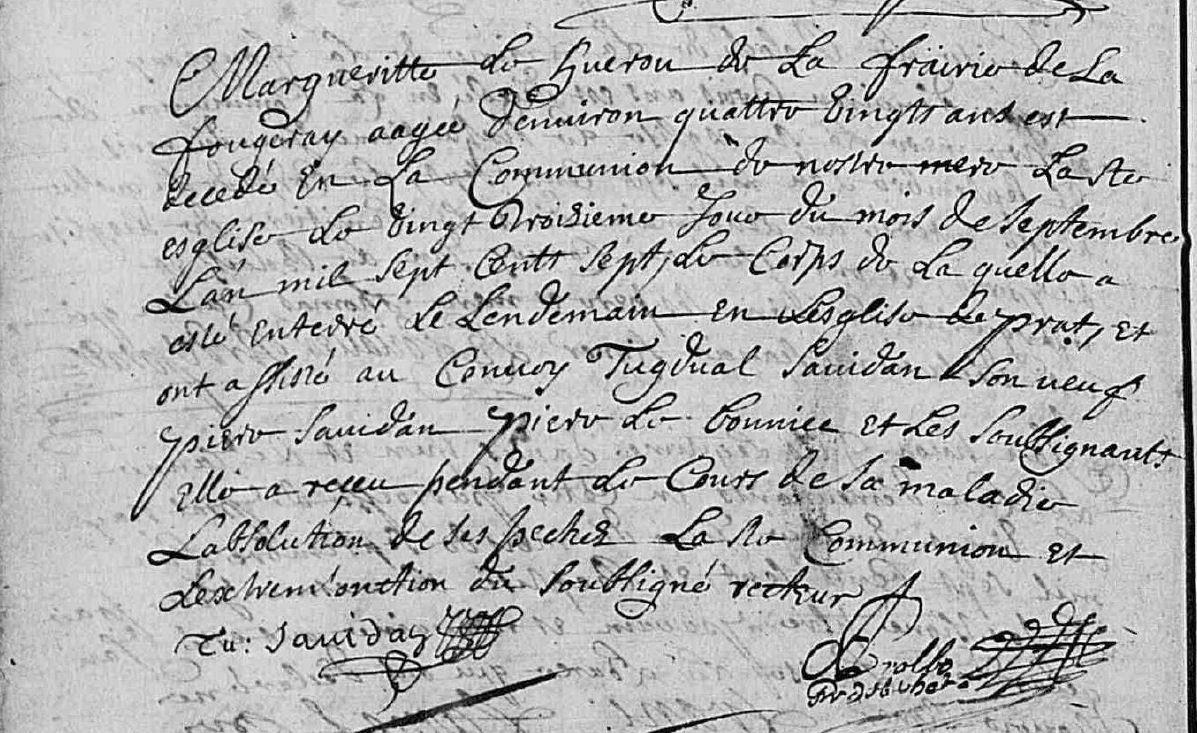 Margueritte Le Huerou de La frairie de La
fougeray aagée denuiron quattre vingts ans est
decedé en La Communion de nostre mere La Ste
esglise Le vingt troisieme Jour du mois de septembre
L'an mil sept cents sept, Le Corps de La quelle a
esté enterré Le Lendemain en Lesglise de prat, et
ont assisté au Conuoy Tugdual Sauidan son veuf
piere Sauidan piere Le bonniec et Les soubsignants
Elle a reçeu pendant Le Cours de Sa maladie
Labsolution de ses pechez La Ste Communion et
Lextrem'onction du soubsigné recteur
Tu: Sauidan